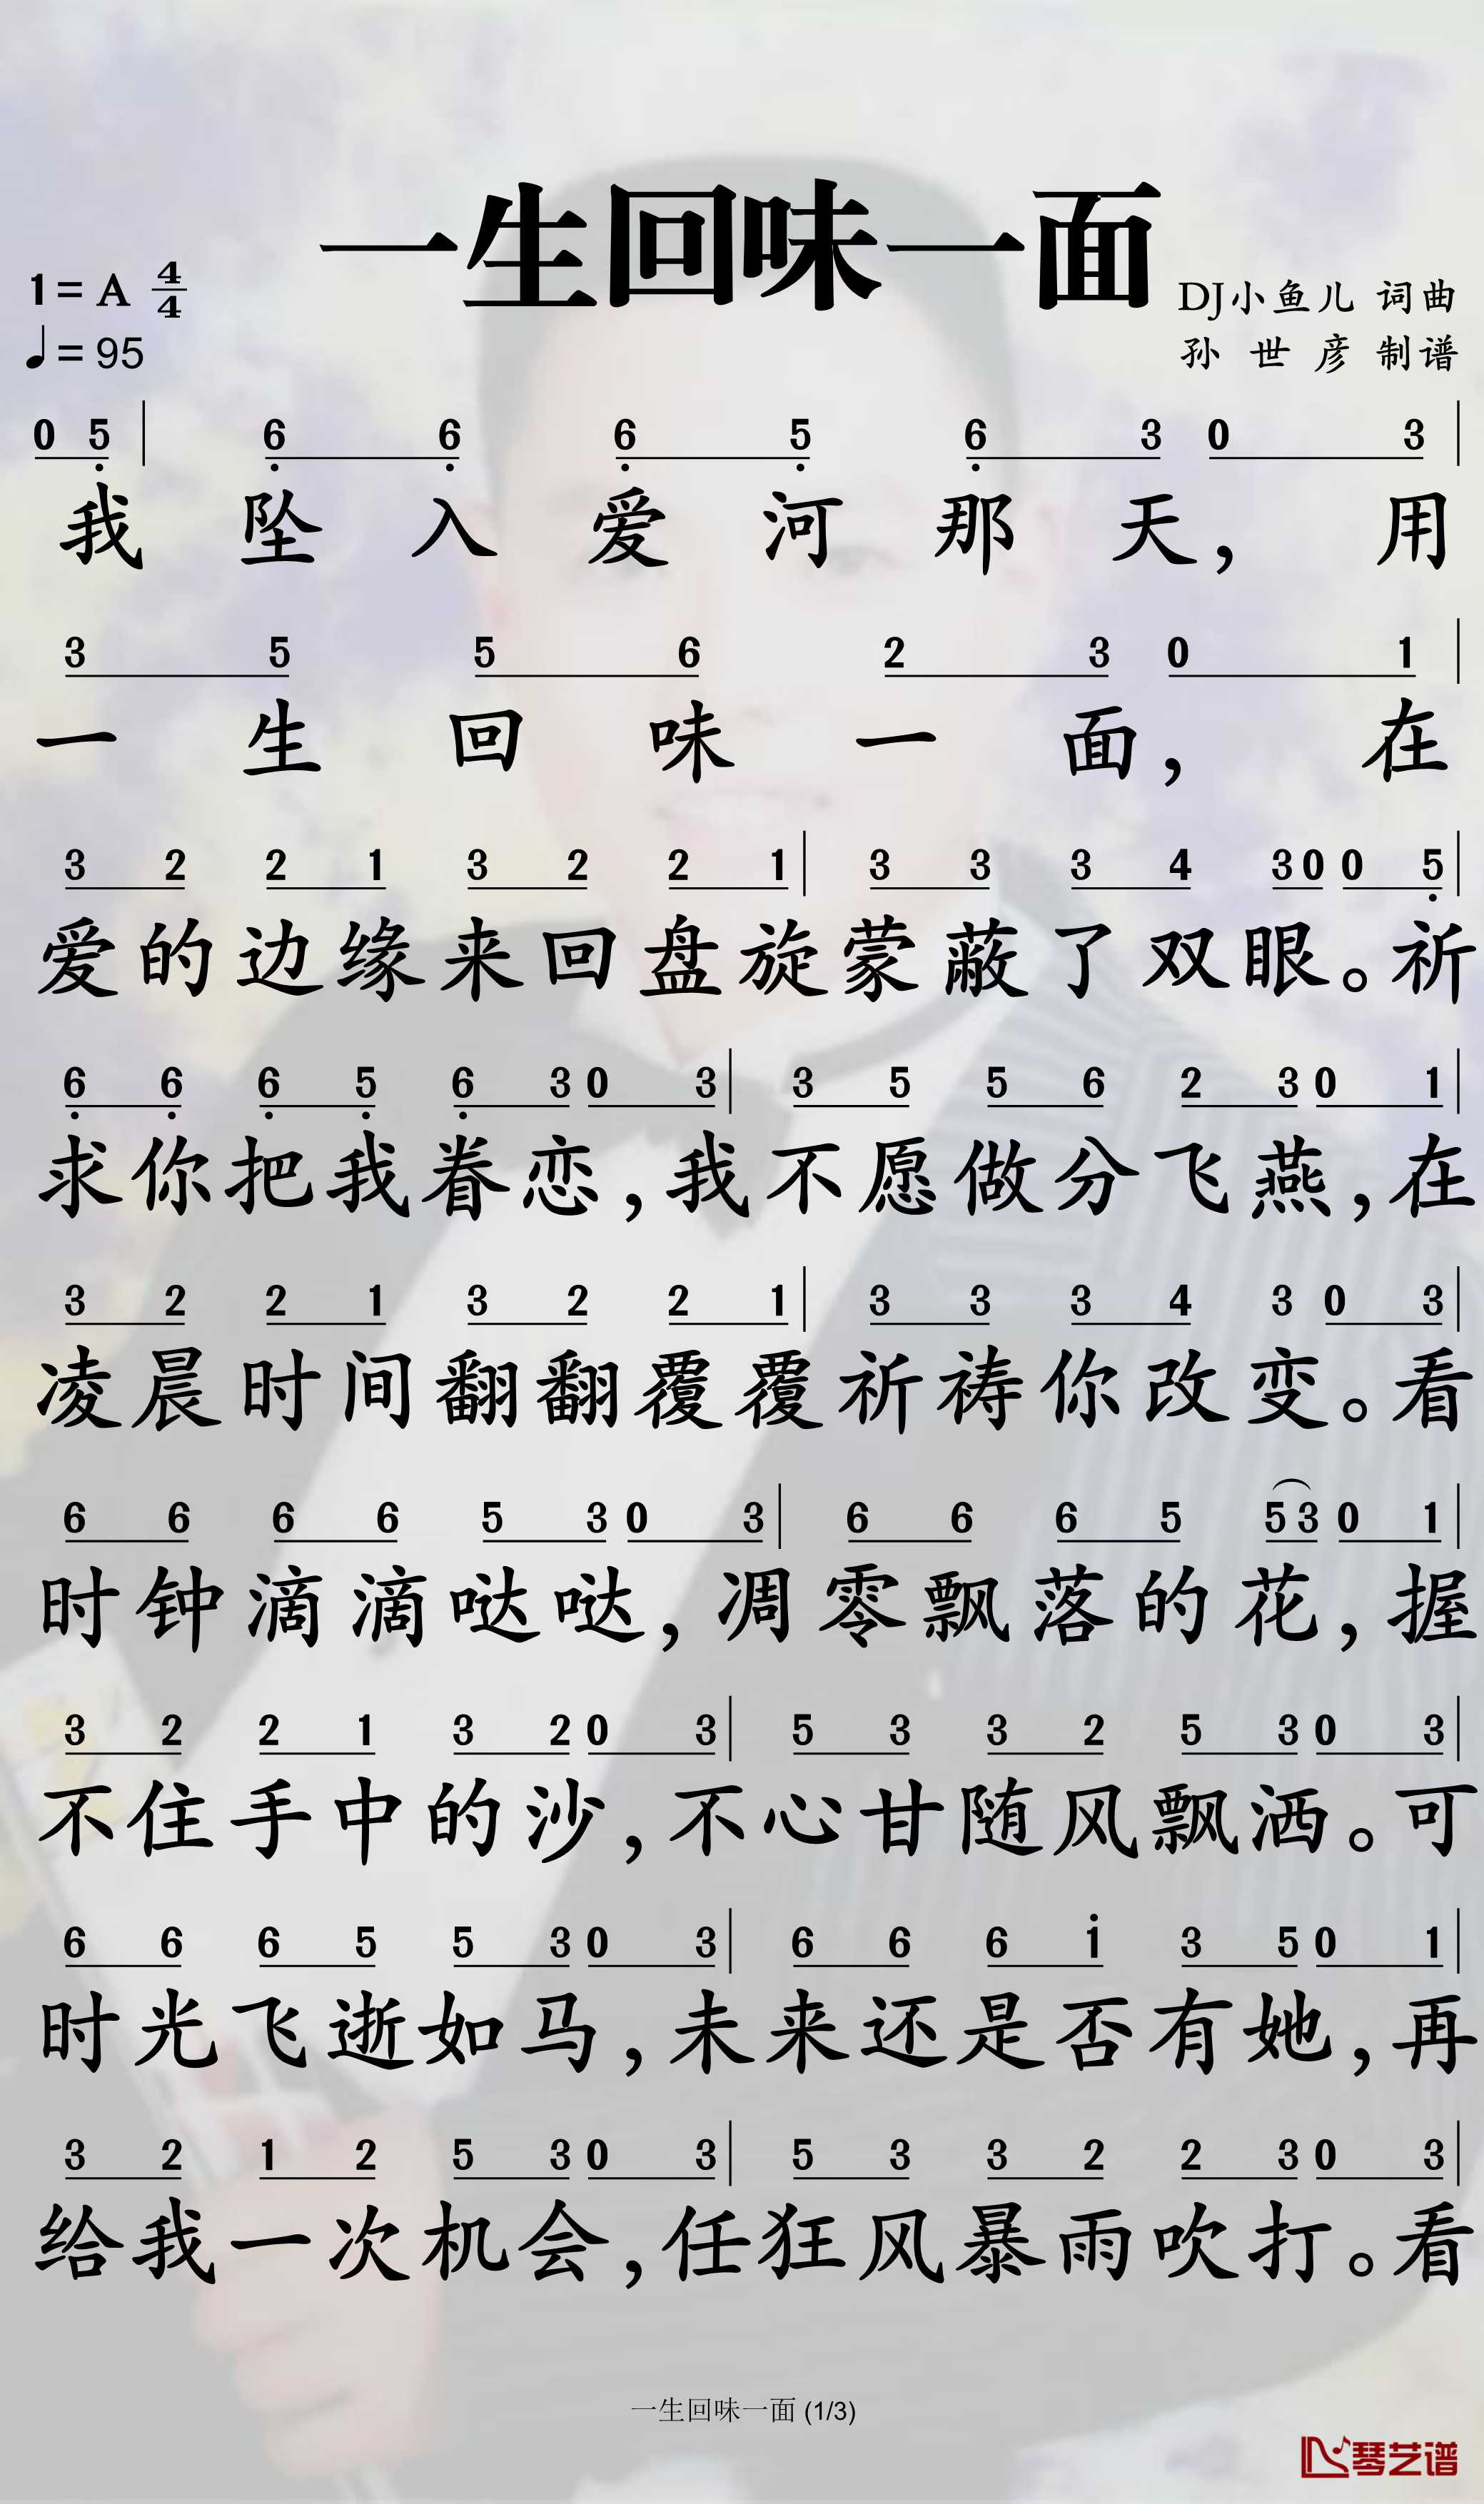 一生回味一面
1=A 4/4
♩=95
DJ小鱼儿 词曲
孙 世 彦 制谱
0 5̣ | 6̣ 6̣ 6̣ 5̣ 6̣ 3 0 3 |
我 坠 入 爱 河 那 天， 用
3 5 5 6 2 3 0 1 |
一 生 回 味 一 面， 在
3 2 2 1 3 2 2 1 | 3 3 3 4 3 0 0 5̣ |
爱的边缘来回盘旋蒙蔽了双眼。祈
6̣ 6̣ 6̣ 5̣ 6̣ 3 0 3 | 3 5 5 6 2 3 0 1 |
求你把我眷恋，我不愿做分飞燕，在
3 2 2 1 3 2 2 1 | 3 3 3 4 3 0 3 |
凌晨时间翻翻覆覆祈祷你改变。看
6 6 6 6 5 3 0 3 | 6 6 6 5 5 3 0 1 |
时钟滴滴哒哒，凋零飘落的花，握
3 2 2 1 3 2 0 3 | 5 3 3 2 5 3 0 3 |
不住手中的沙，不心甘随风飘洒。可
6 6 6 5 5 3 0 3 | 6 6 6 i 3 5 0 1 |
时光飞逝如马，未来还是否有她，再
3 2 1 2 5 3 0 3 | 5 3 3 2 2 3 0 3 |
给我一次机会，任狂风暴雨吹打。看
一生回味一面 (1/3)
琴艺谱